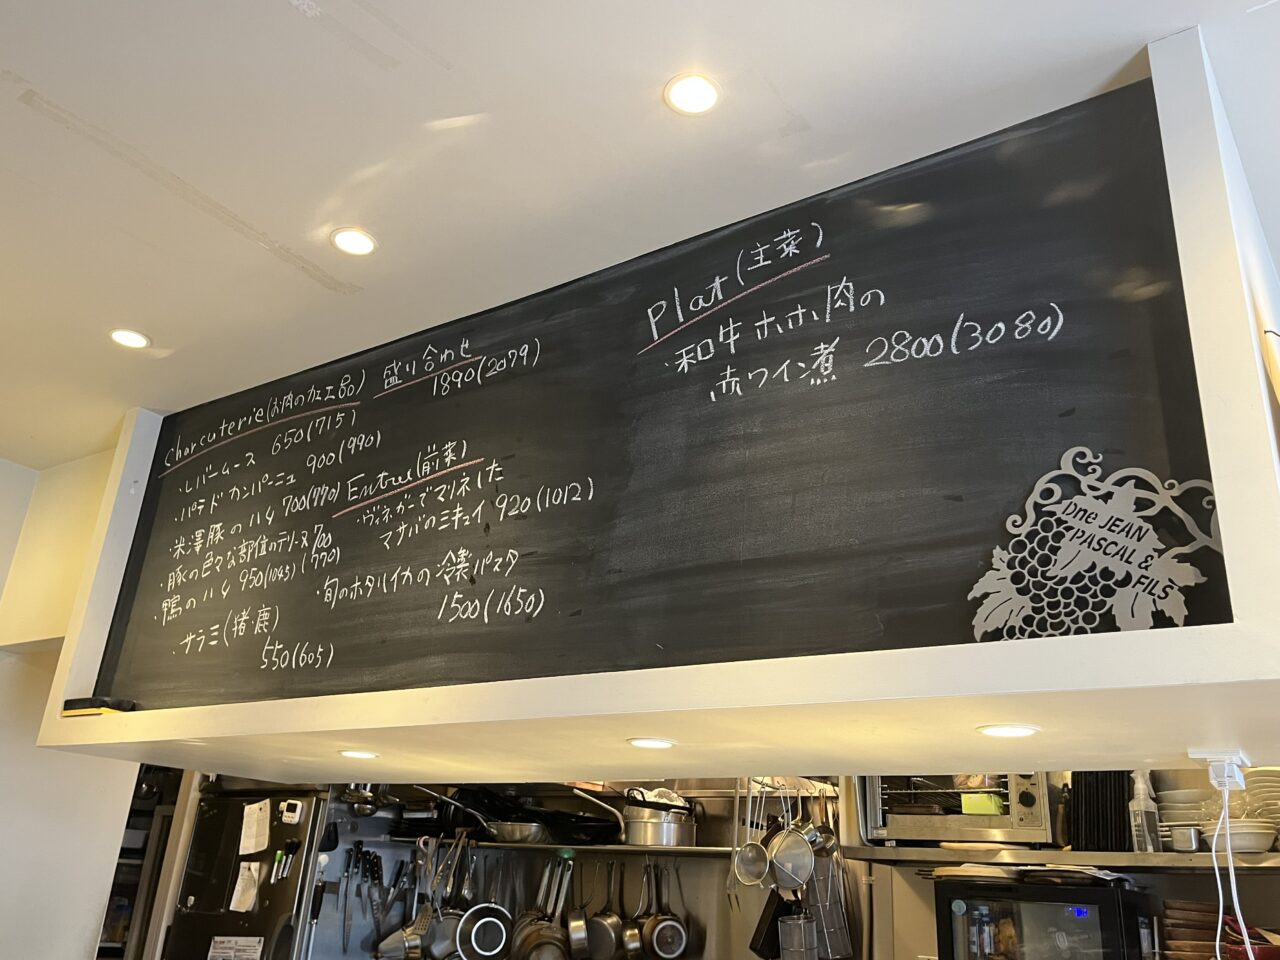 Charcuterie(お肉の加工品)
盛り合わせ
1890(2079)
・レバームース 650(715)
・パテド カンパーニュ 900(990)
・米澤豚のハム 700(770)
・豚の色々な部位のテリーヌ 700
(770)
・鴨のハム 950(1045)
・サラミ(猪・鹿)
550(605)
Entree(前菜)
・ヴィネガーでマリネした
マサバのミキュイ 920(1012)
・旬のホタルイカの 冷製パスタ
1500(1650)
Plat(主菜)
・和牛ホホ肉の
赤ワイン煮 2800(3080)
Dne JEAN
PASCAL &
FILS